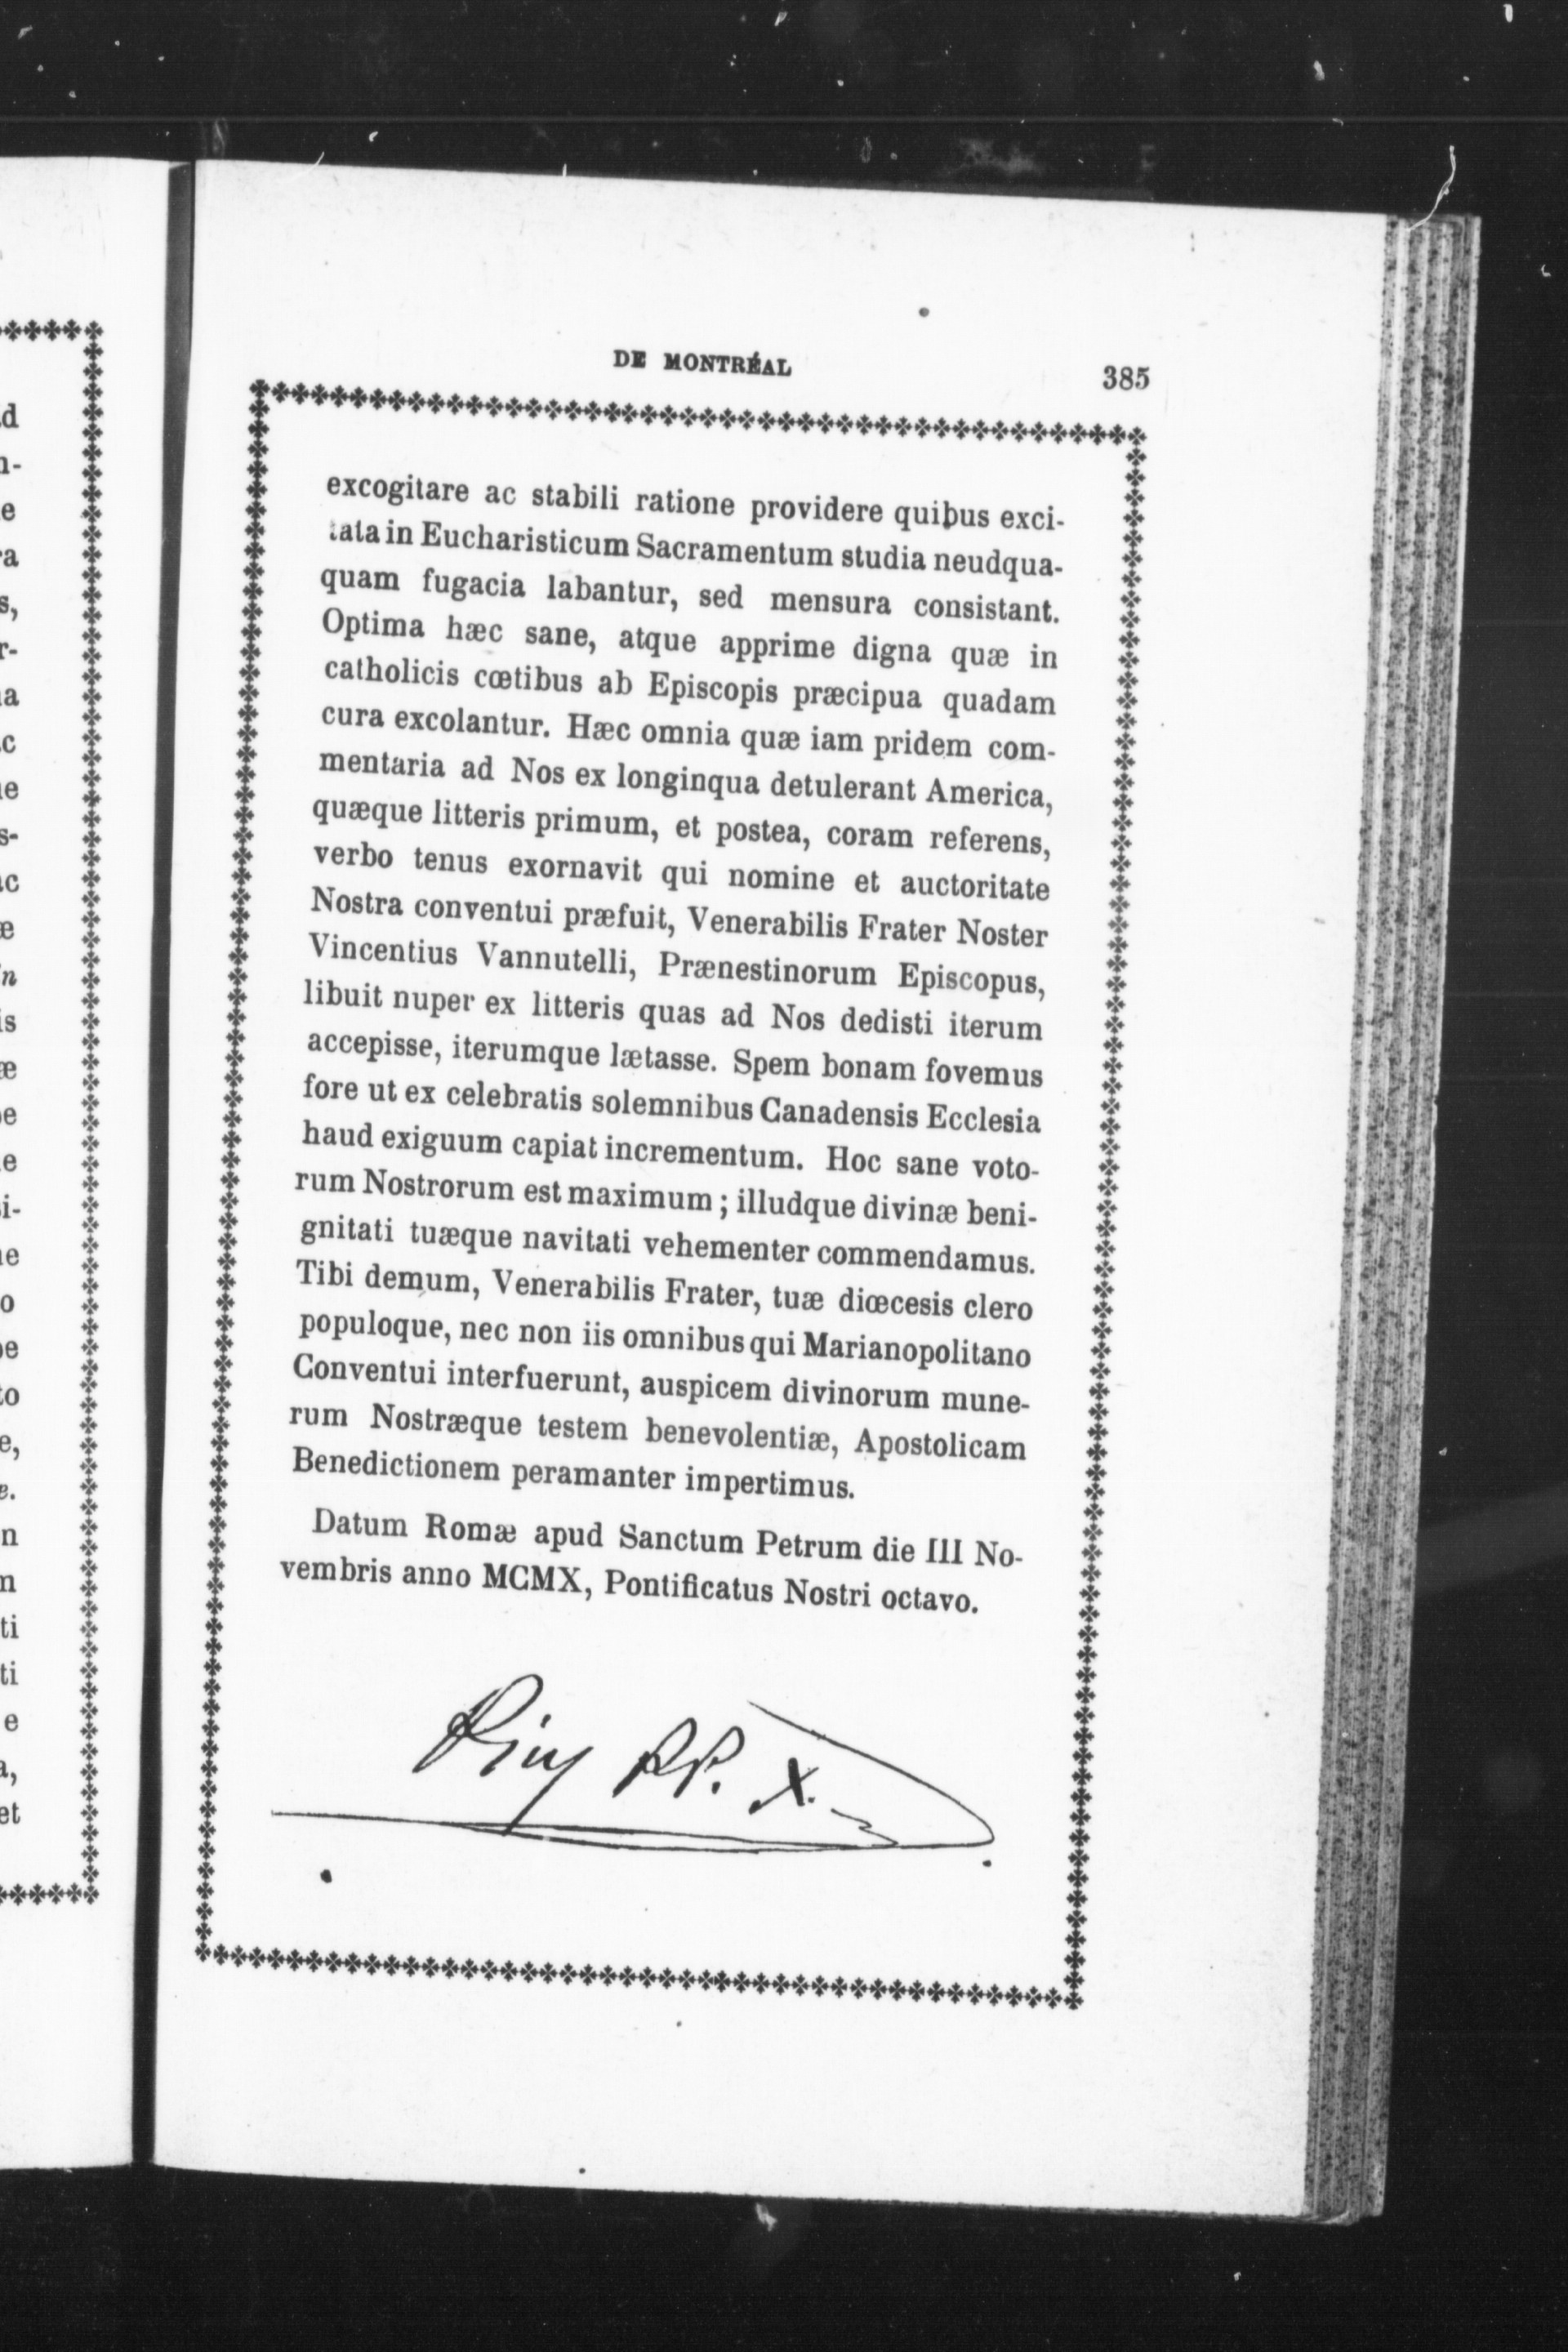 DE MONTRÉAL
385
excogitare ac stabili ratione providere quibus exci-
tata in Eucharisticum Sacramentum studia neudqua-
quam fugacia labantur, sed mensura consistant.
Optima hæc sane, atque apprime digna quæ in
catholicis cœtibus ab Episcopis præcipua quadam
cura excolantur. Hæc omnia quæ iam pridem com-
mentaria ad Nos ex longinqua detulerant America,
quæque litteris primum, et postea, coram referens,
verbo tenus exornavit qui nomine et auctoritate
Nostra conventui præfuit, Venerabilis Frater Noster
Vincentius Vannutelli, Prænestinorum Episcopus,
libuit nuper ex litteris quas ad Nos dedisti iterum
accepisse, iterumque lætasse. Spem bonam fovemus
fore ut ex celebratis solemnibus Canadensis Ecclesia
haud exiguum capiat incrementum. Hoc sane voto-
rum Nostrorum est maximum ; illudque divinæ beni-
gnitati tuæque navitati vehementer commendamus.
Tibi demum, Venerabilis Frater, tuæ diœcesis clero
populoque, nec non iis omnibus qui Marianopolitano
Conventui interfuerunt, auspicem divinorum mune-
rum Nostræque testem benevolentiæ, Apostolicam
Benedictionem peramanter impertimus.
Datum Romæ apud Sanctum Petrum die III No-
vembris anno MCMX, Pontificatus Nostri octavo.
Pius PP. X.